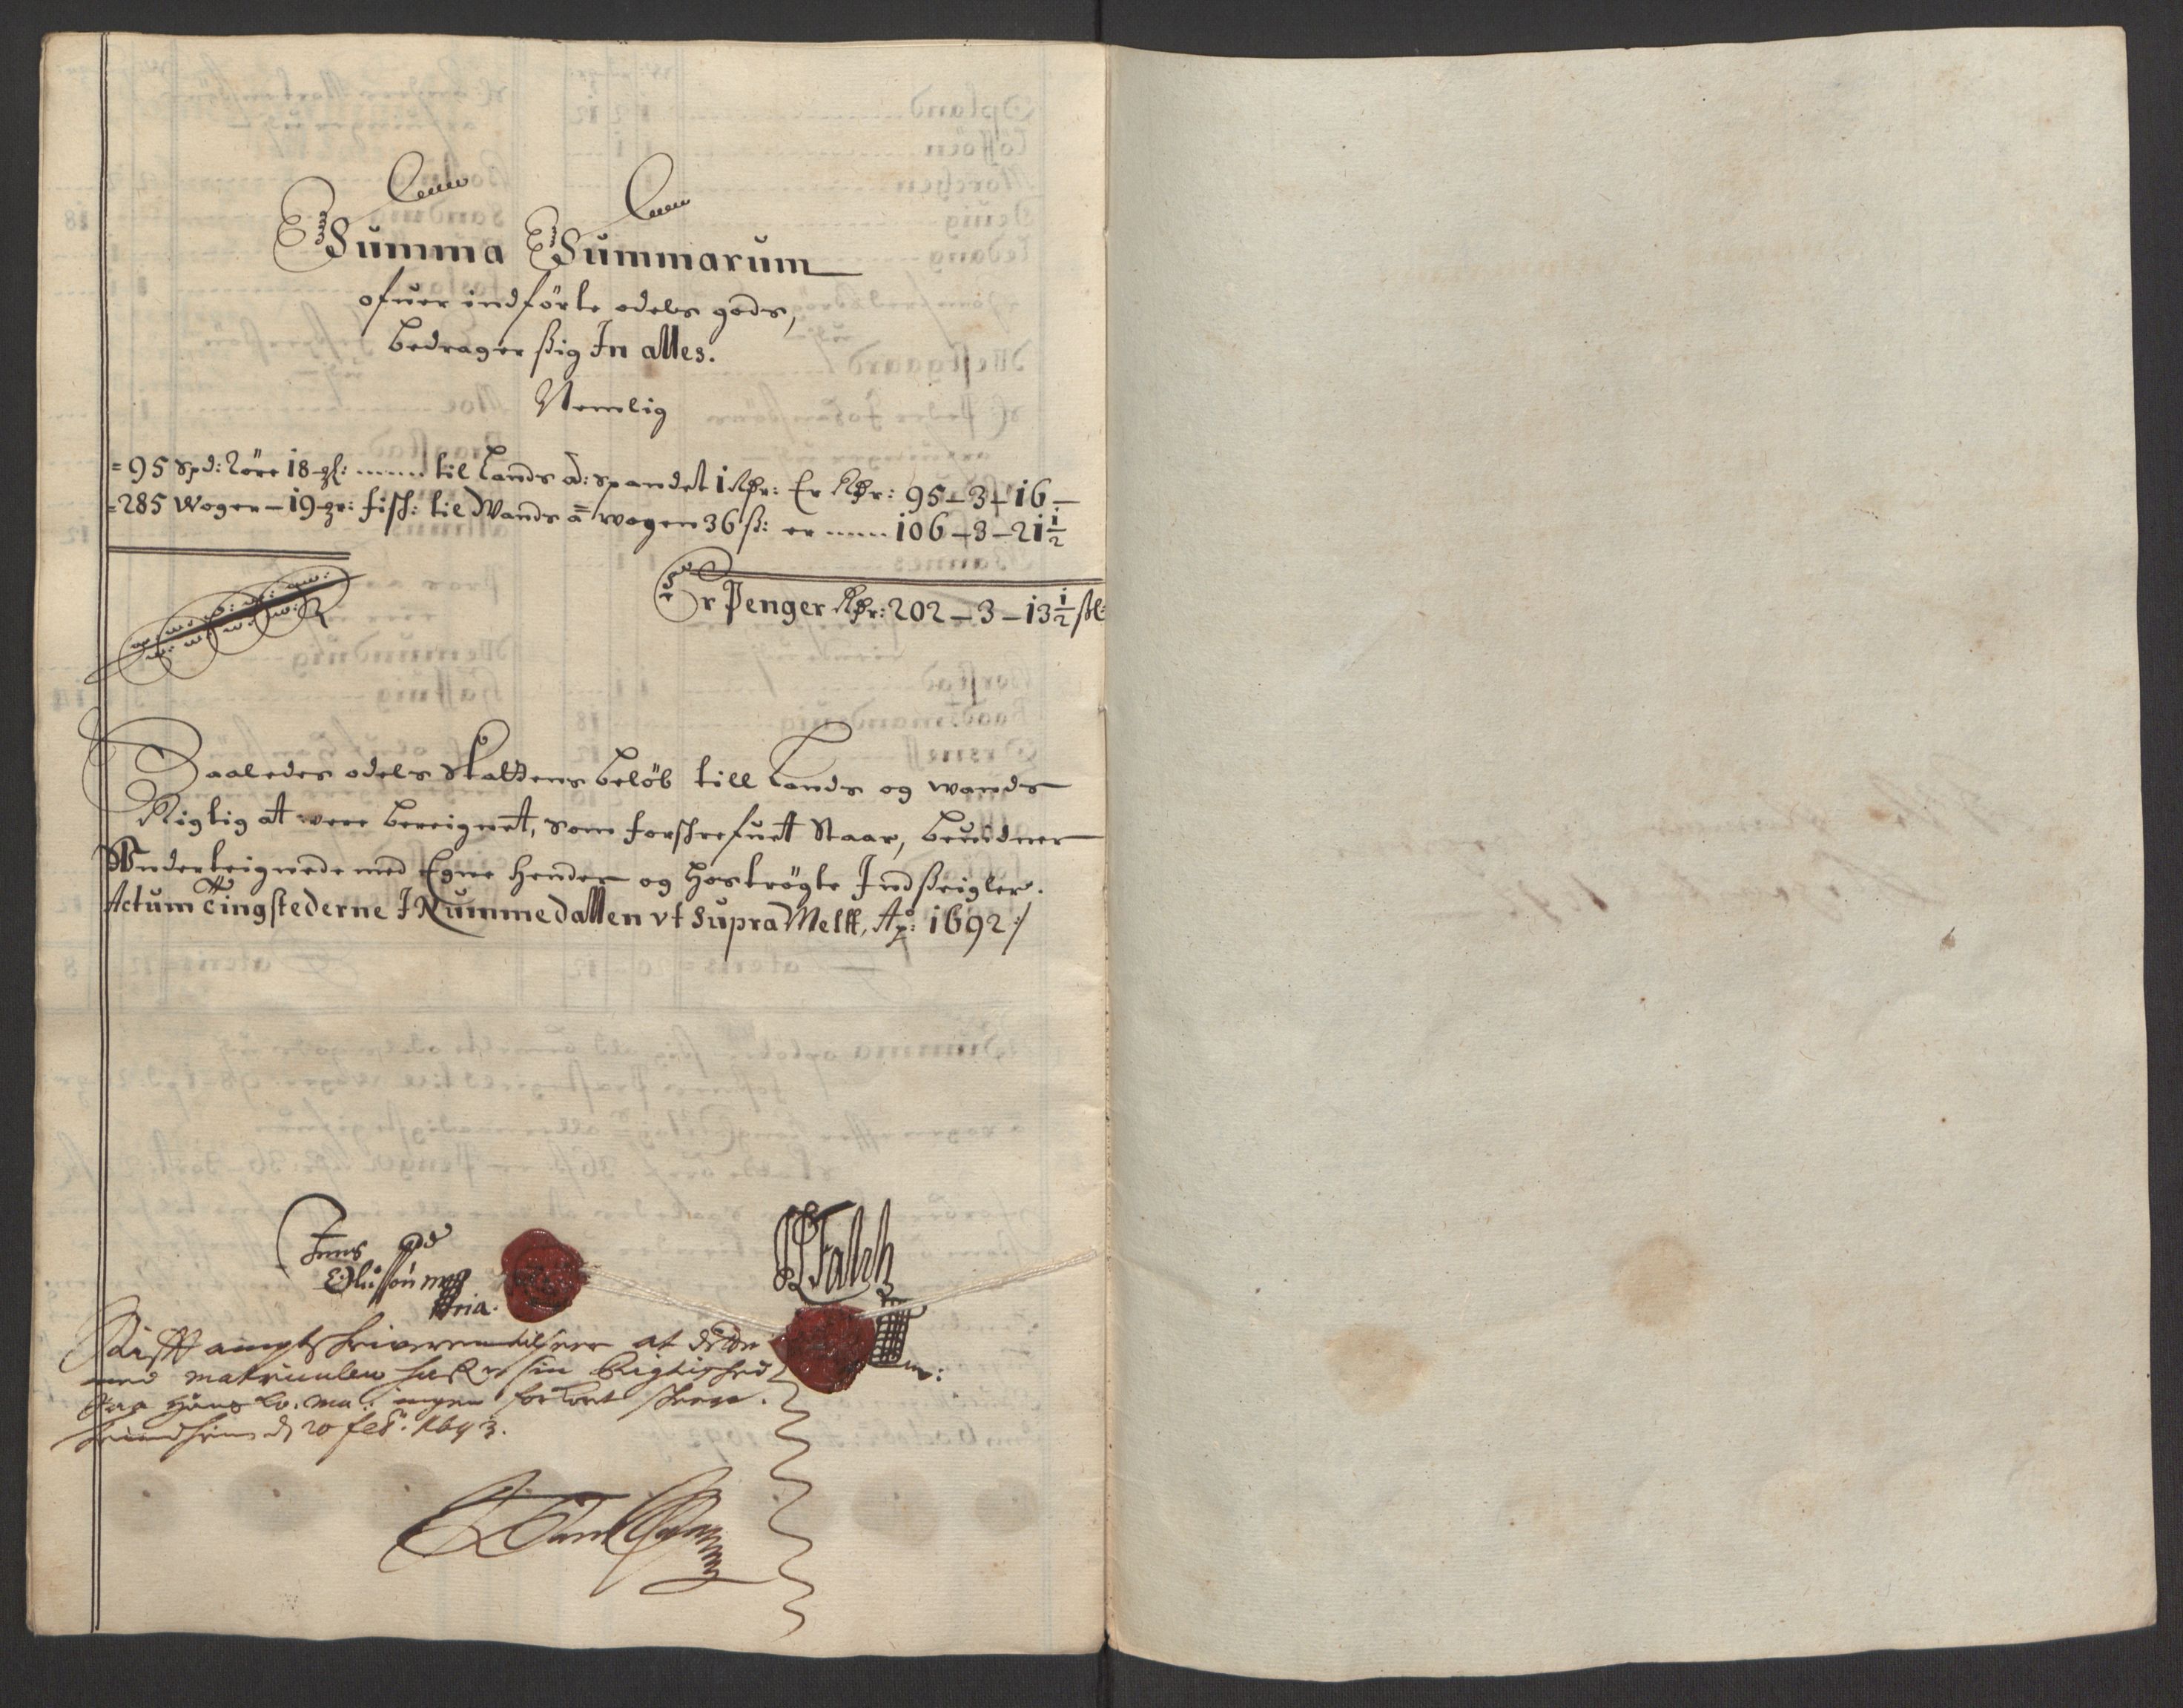 Summa Summarum
ofuer indförte odels gods,
bedrager ßig In alles.
Nemlig
=95 Spd: 2öre 18 gl: ...... til Lands a: spandet 1 Rdr: Er Rdr: 95 – 3 – 16 –
=285 Woger – 19 gr: fisch: til Wands a wogen 36 ß: er ..... 106 – 3 – 21½
Er Penger Rdr: 202 – 3 – 13½ ßl:
Saaledes odels Skattens beløb till Lands og wands
Rigtig at were bereignet, som forschrefuet Staar, beuidner
Vnderteignede med Egne hender og hoströgte Indßeigler.
Actum Tingstederne I Nummedallen vt Supra Melt, Ao: 1692 /
Jens
Olussøn
mpria.
Falch
m:
at dette
med matriculen sin Rigtighed
paa Hans ingen
d 20 feb: 1693.